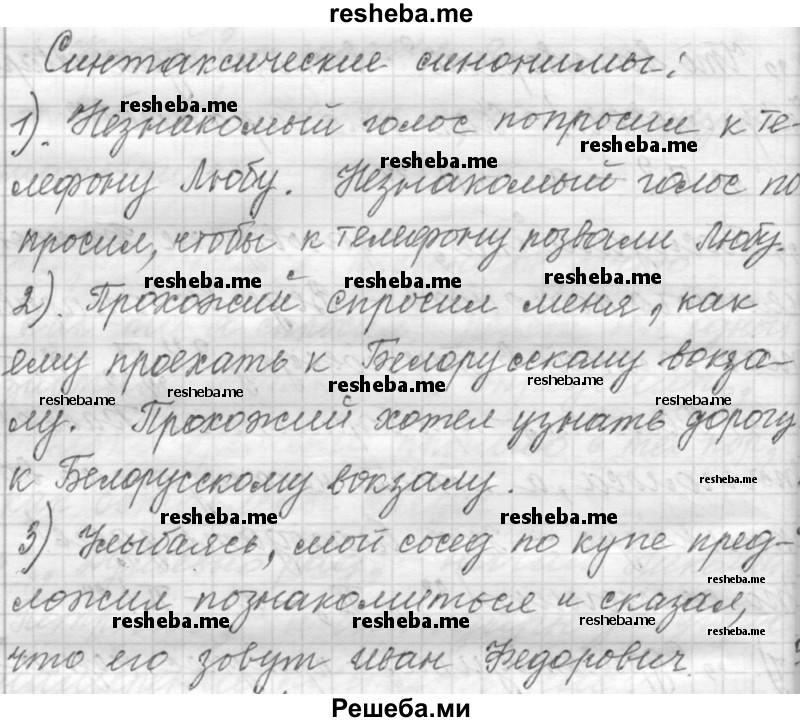 resheba.me
Синтаксические синонимы:
resheba.me
1). Незнакомый голос попросил к те-
resheba.me
resheba.me
лефону Любу. Незнакомый голос по
просил, чтобы к телефону позвали Любу.
resheba.me resheba.me resheba.me
2). Прохожий спросил меня, как
ему проехать к Белорусскому вокза-
resheba.me resheba.me resheba.me resheba.me resheba.me
лу. Прохожий хотел узнать дорогу
к Белорусскому вокзалу.
resheba.me
resheba.me resheba.me
3) Улыбаясь, мой сосед по купе пред-
resheba.me
ложил познакомиться и сказал,
resheba.me resheba.me resheba.me resheba.me
что его зовут Иван Федорович.
Решеба.ми